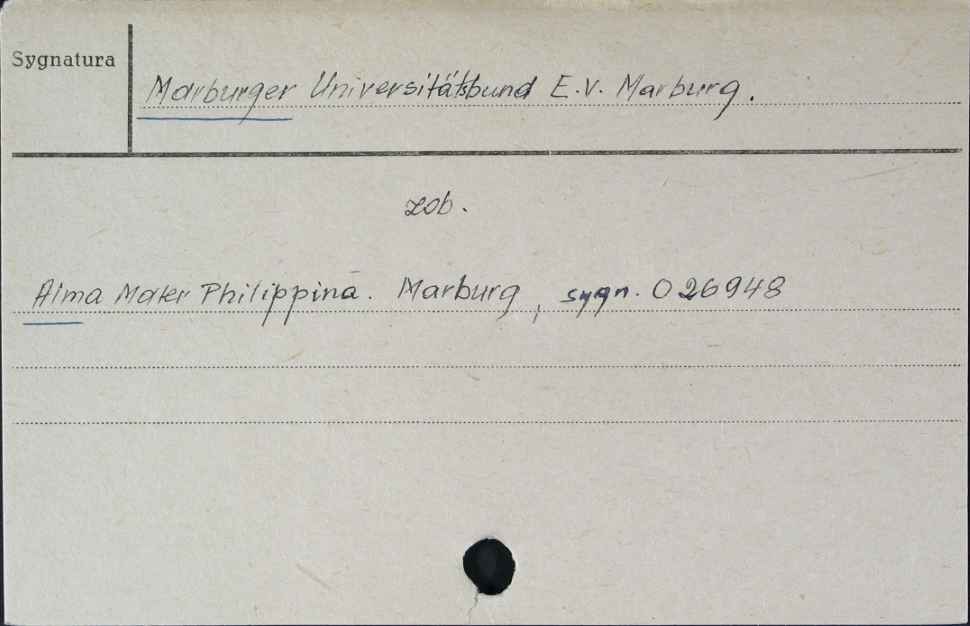 Sygnatura
Marburger Universitätsbund E.V. Marburg.
zob.
Alma Mater Philippina. Marburg, sygn. O 26948